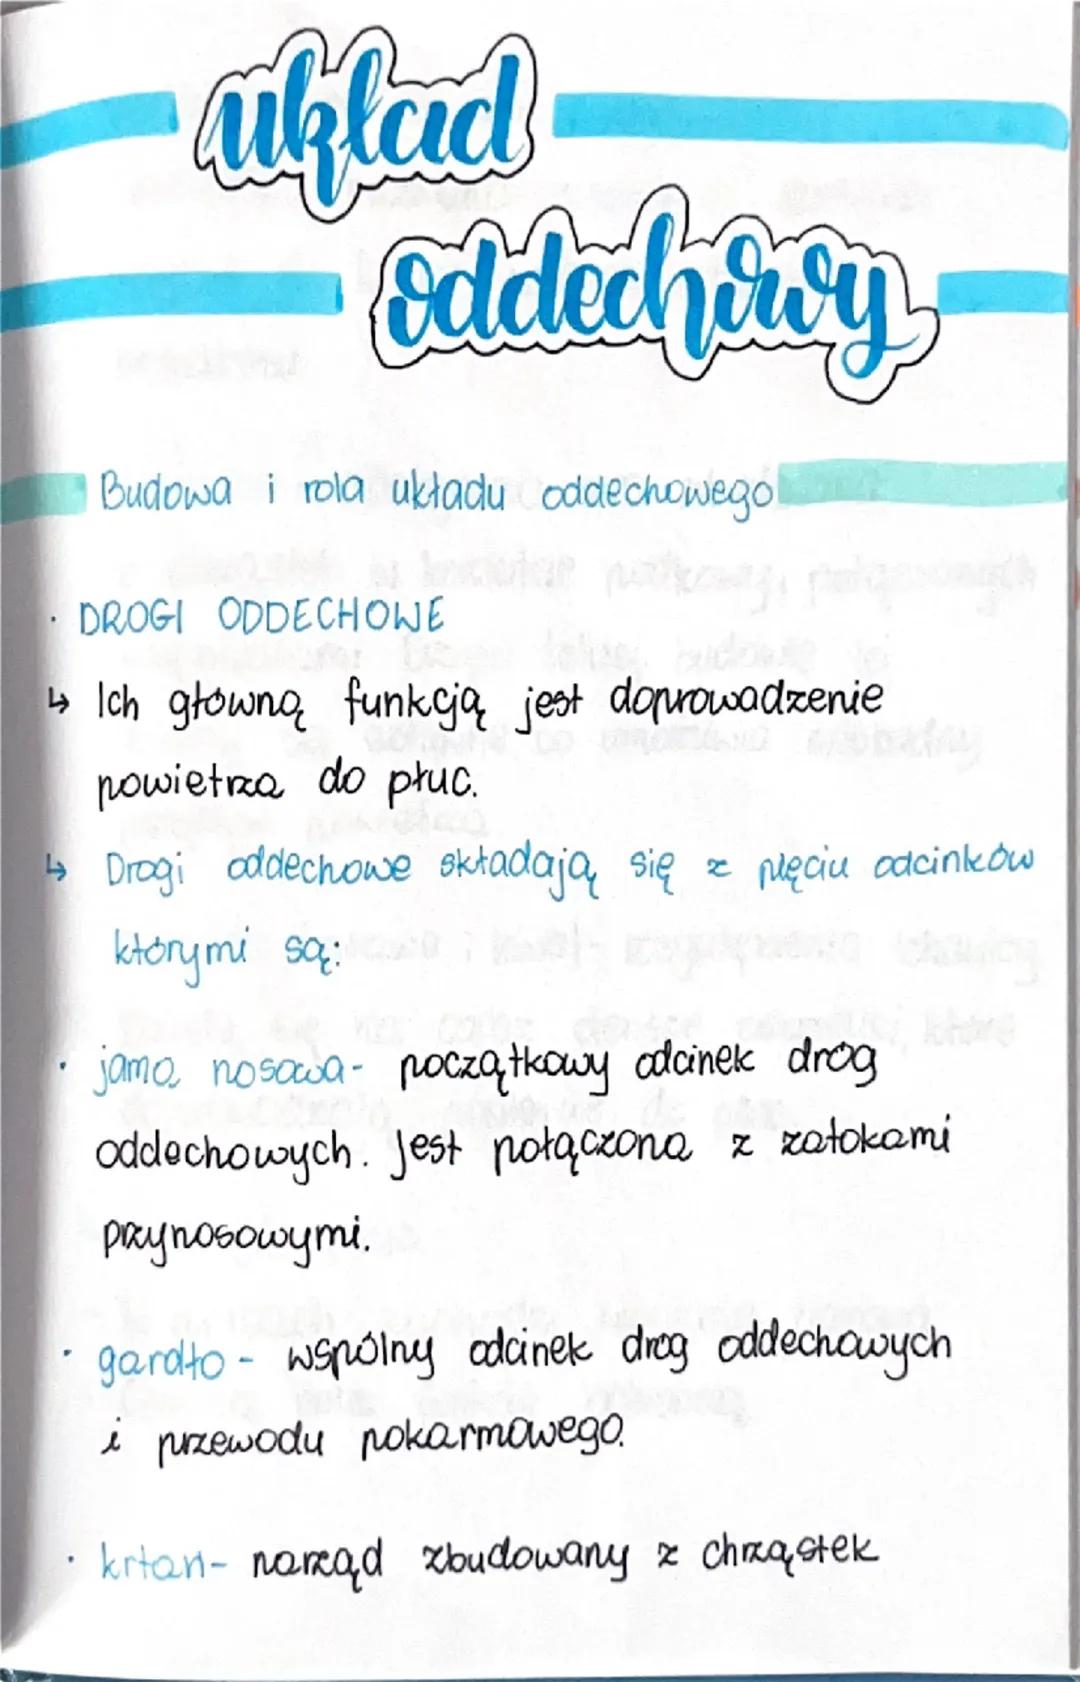 układ
oddechowy
Budowa i rola układu oddechowego
· DROGI ODDECHOWE
↳ Ich główną funkcją jest doprowadzenie
powietrza do płuc.
↳ Drogi oddechowe składają się z pięciu odcinków
którymi są:
· jama nosowa - początkowy odcinek dróg
oddechowych. Jest połączona z zatokami
przynosowymi.
· gardło - wspólny odcinek dróg oddechowych
i przewodu pokarmowego.
· krtań - narząd zbudowany z chrząstek